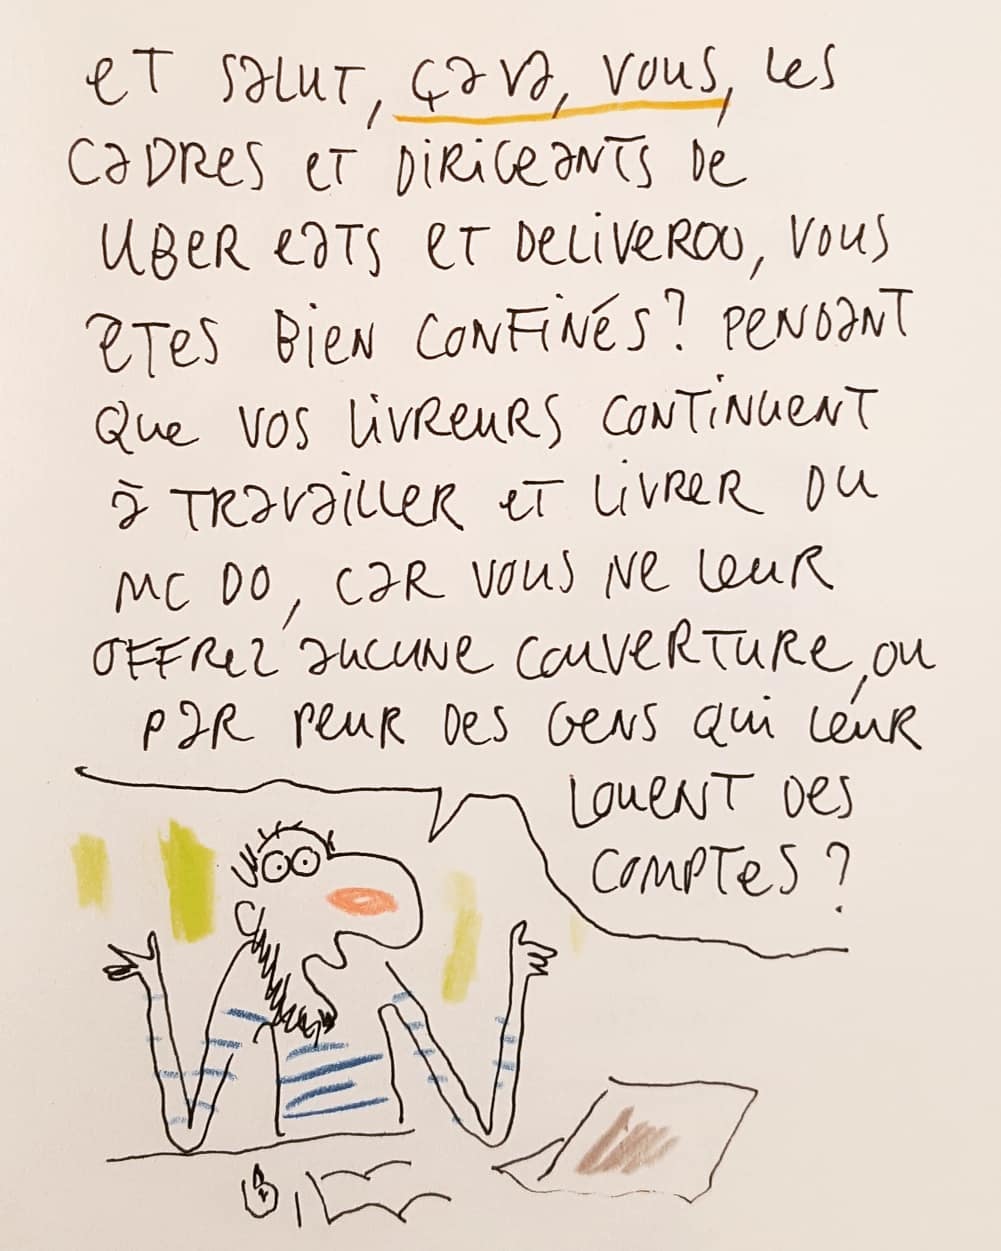 et salut, ça va, vous, les
cadres et dirigeants de
Uber eats et Deliveroo, vous
etes bien confinés ? Pendant
que vos livreurs continuent
à travailler et livrer du
Mc Do, car vous ne leur
offrez aucune couverture, ou
par peur des gens qui leur
louent des
comptes ?